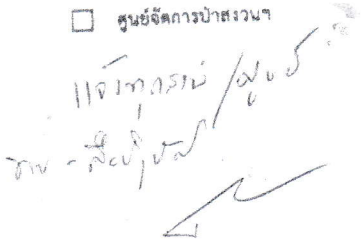 ☐ ศูนย์จัดการป่าสงวนฯ
แจ้งทุกส่วน/ศูนย์
ทราบ - ถือปฏิบัติ